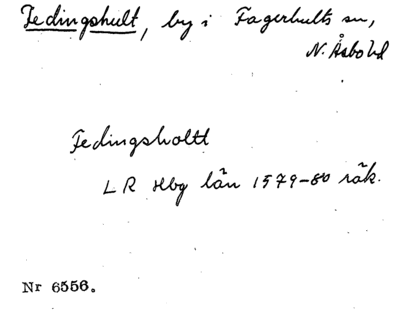 Fedingshult, by i Fagerhults sn,
N. Åsbo hd
Fedingsholtt
LR Hbg län 1579-80 räk.
Nr 6556.